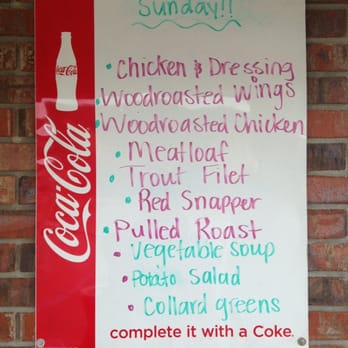 Sunday!!
• Chicken & Dressing
• Woodroasted Wings
• Woodroasted Chicken
• Meatloaf
• Trout Filet
• Red Snapper
• Pulled Roast
• Vegetable soup
• Potato Salad
• Collard greens
complete it with a Coke.
Coca-Cola
Coca-Cola